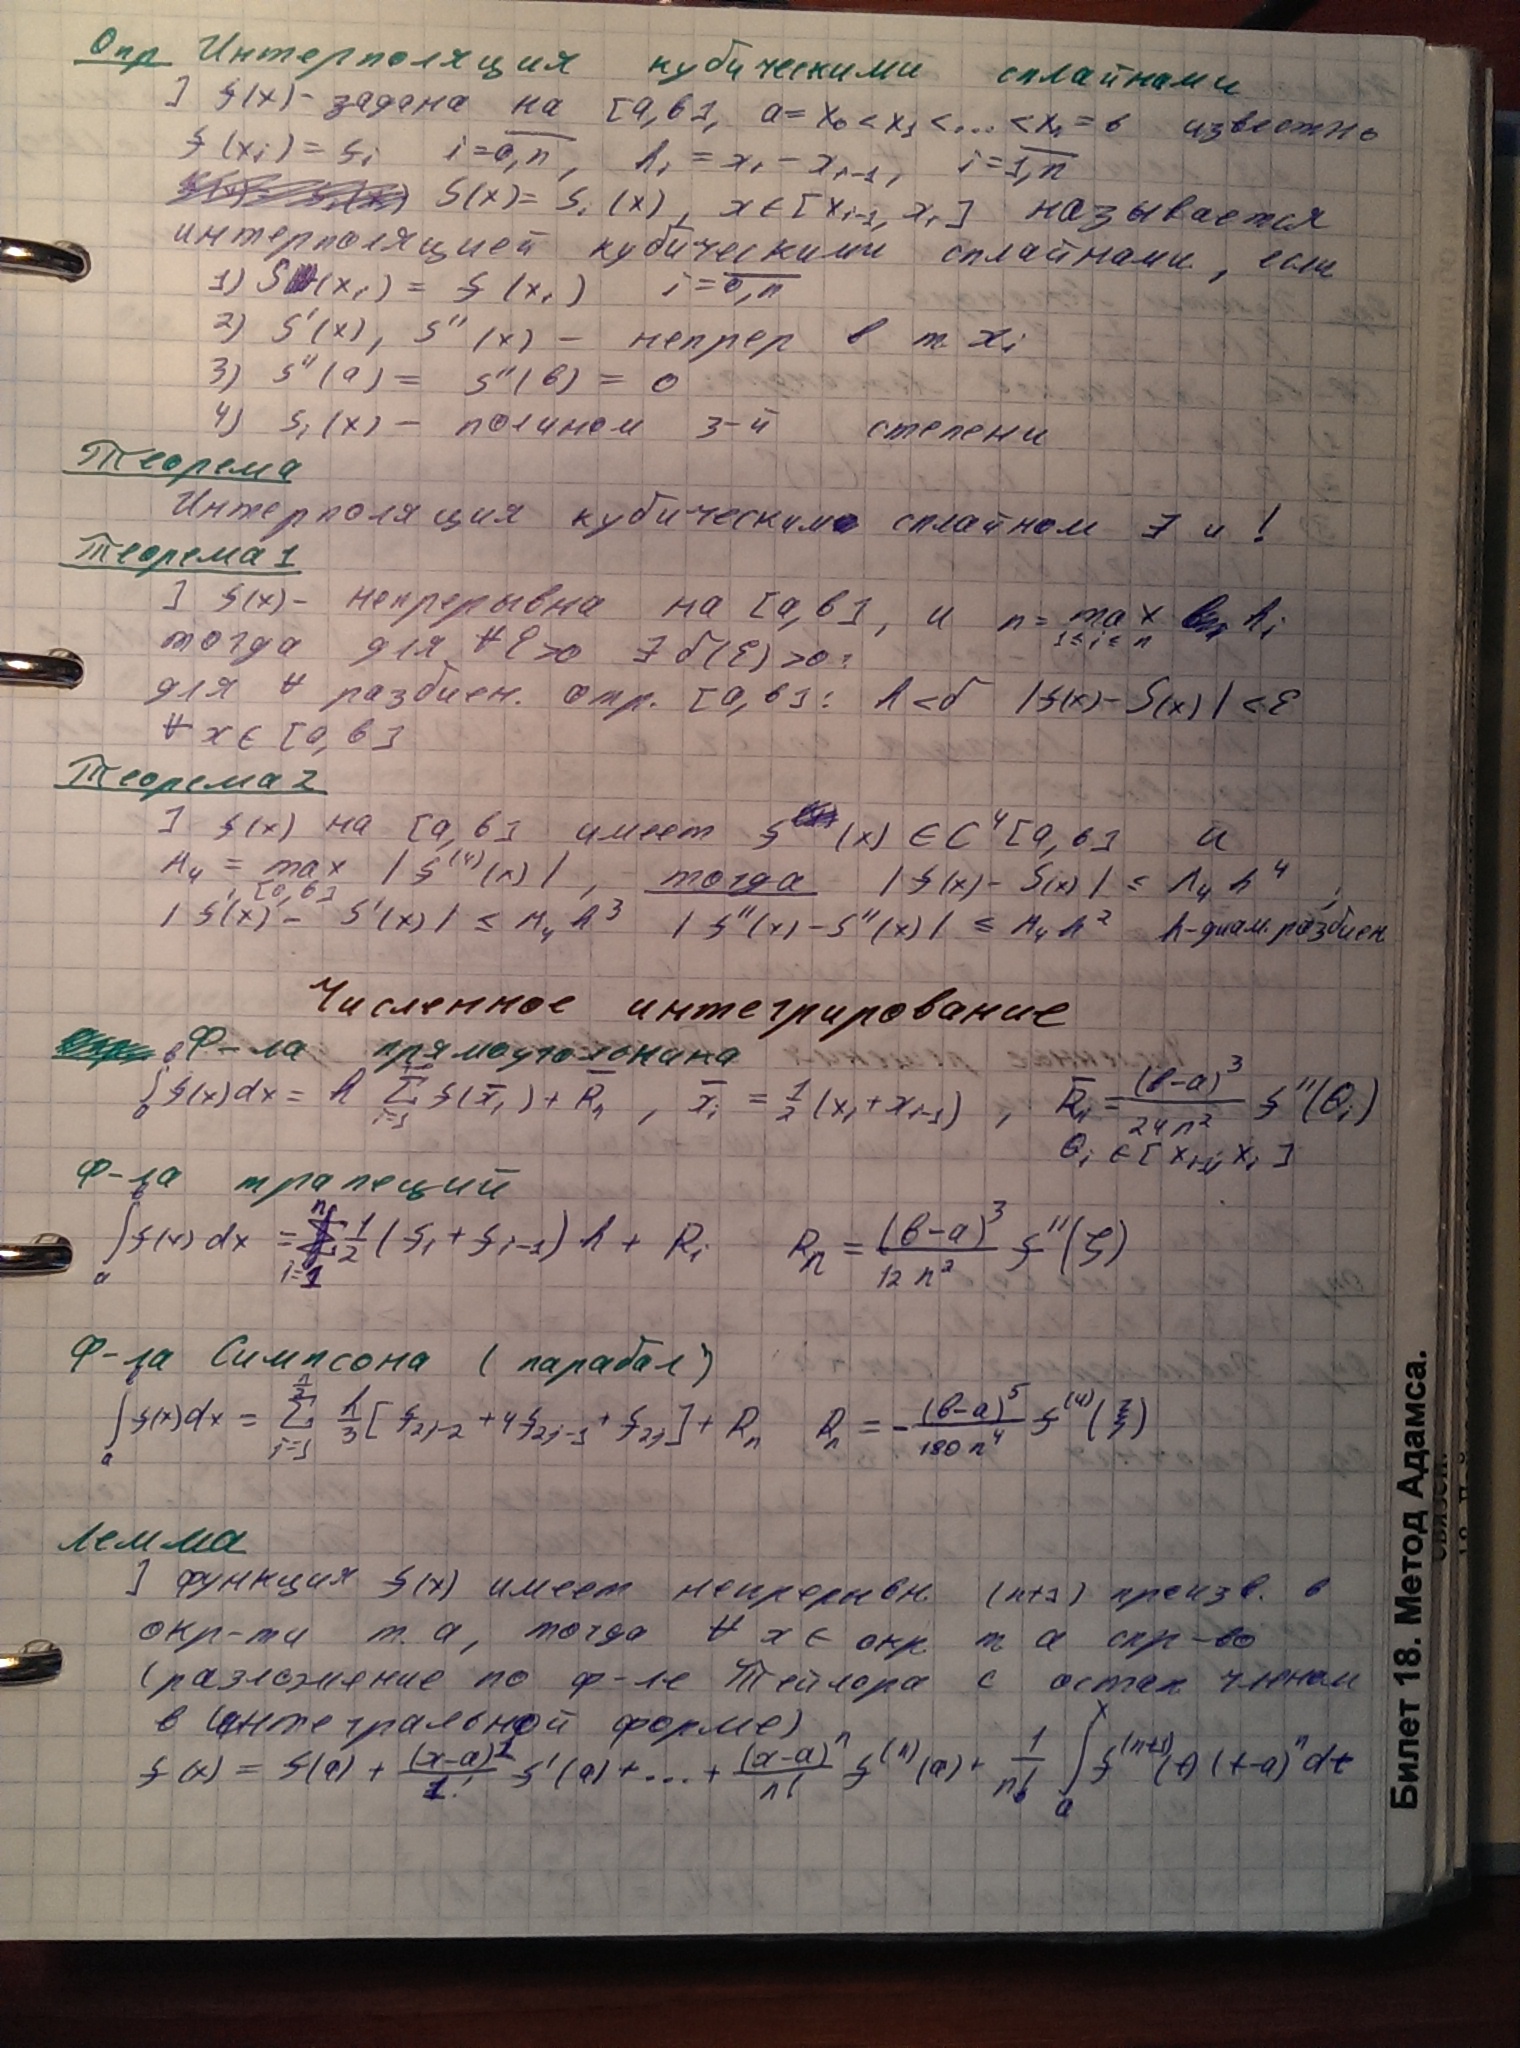 Опр Интерполяция кубическими сплайнами
] f(x) - задана на [a,b], a = x₀ < x₁ < ... < xₙ = b известно
f(xᵢ) = fᵢ i = 0,n, hᵢ = xᵢ - xᵢ₋₁, i = 1,n
S(x) = Sᵢ(x), x ∈ [xᵢ₋₁, xᵢ] называется
интерполяцией кубическими сплайнами, если
1) S(xᵢ) = f(xᵢ) i = 0,n
2) S'(x), S''(x) - непрер в т xᵢ
3) S''(a) = S''(b) = 0
4) Sᵢ(x) - полином 3-й степени
Теорема
Интерполяция кубическим сплайном ∃ и !
Теорема 1
] f(x) - непрерывна на [a,b], и n = max hᵢ
1≤i≤n
тогда для ∀ ε>0 ∃ δ(ε)>0:
для ∀ разбиен. отр. [a,b]: h<δ |f(x) - S(x)| < ε
∀ x ∈ [a,b]
Теорема 2
] f(x) на [a,b] имеет f(x) ∈ C⁴[a,b] и
M₄ = max |f⁽⁴⁾(x)|, тогда |f(x) - S(x)| ≤ M₄ h⁴,
[a,b]
|f'(x) - S'(x)| ≤ M₄ h³ |f''(x) - S''(x)| ≤ M₄ h² h-диам. разбиен
Численное интегрирование
Ф-ла прямоугольника
∫ₐᵇ f(x)dx = h Σᵢ₌₁ⁿ f(x̄ᵢ) + R̄ₙ, x̄ᵢ = 1/2 (xᵢ + xᵢ₋₁), R̄ₙ = (b-a)³/24n² f''(θᵢ)
θᵢ ∈ [xᵢ₋₁, xᵢ]
Ф-ла трапеций
∫ₐᵇ f(x)dx = Σᵢ₌₁ⁿ 1/2 (fᵢ + fᵢ₋₁) h + Rᵢ Rₙ = (b-a)³/12n² f''(ξ)
Ф-ла Симпсона (парабал)
∫ₐᵇ f(x)dx = Σᵢ₌₁^(n/2) h/3 [f₂ᵢ₋₂ + 4f₂ᵢ₋₁ + f₂ᵢ] + Rₙ Rₙ = -(b-a)⁵/180n⁴ f⁽⁴⁾(ξ)
Лемма
] функция f(x) имеет непрерывн. (n+1) произв. в
окр-ти т. a, тогда ∀ x ∈ окр т a спр-во
(разложение по ф-ле Тейлора с остат членом
в интегральной форме)
f(x) = f(a) + (x-a)¹/1! f'(a) + ... + (x-a)ⁿ/n! f⁽ⁿ⁾(a) + 1/n! ∫ₐˣ f⁽ⁿ⁺¹⁾(t)(t-a)ⁿdt
Билет 18. Метод Адамса.